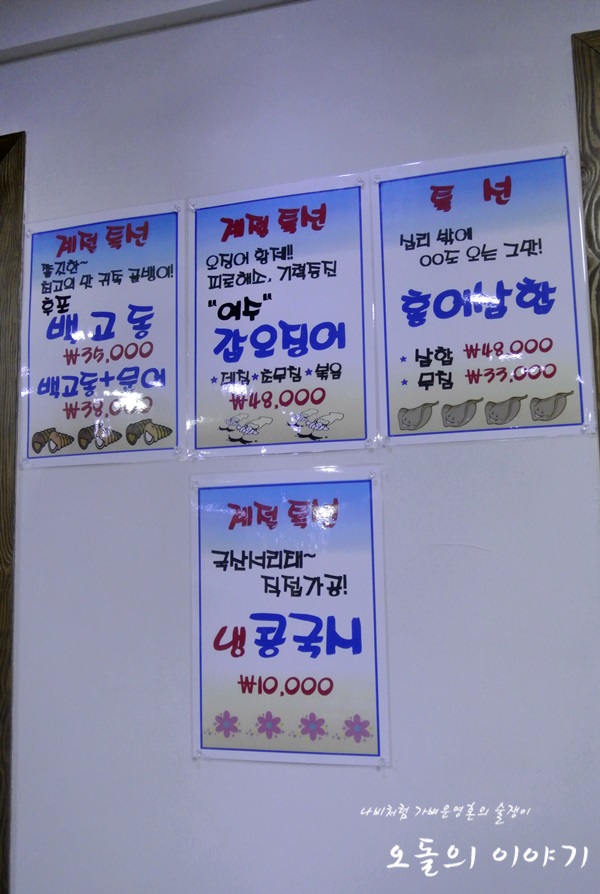 계절 특선
쫄깃한~
최고의 맛 귀족 골뱅이!
후포
백고동
₩35,000
백고동+문어
₩38,000
계절 특선
오징어 황제!!
피로해소, 기력증진
"여수"
갑오징어
*데침*초무침*볶음
₩48,000
특 선
십리 밖에
OO도 오는 그맛!
홍어삼합
* 삼합 ₩48,000
* 무침 ₩33,000
계절 특선
국산서리태~
직접가공!
냉콩국시
₩10,000
나비처럼 가벼운영혼의 술쟁이
오돌의 이야기